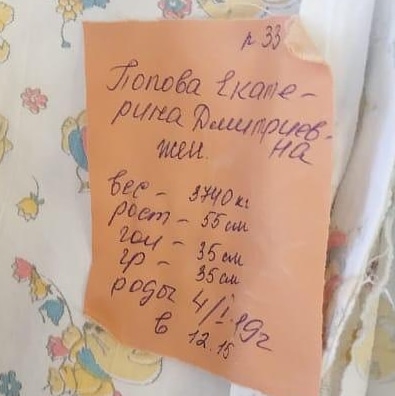 п 33
Попова Екате-
рина Дмитриев-
жен. на
вес - 3740 кг
рост - 55 см
гол - 35 см
гр - 35 см
роды 4/I.19г
в 12.15